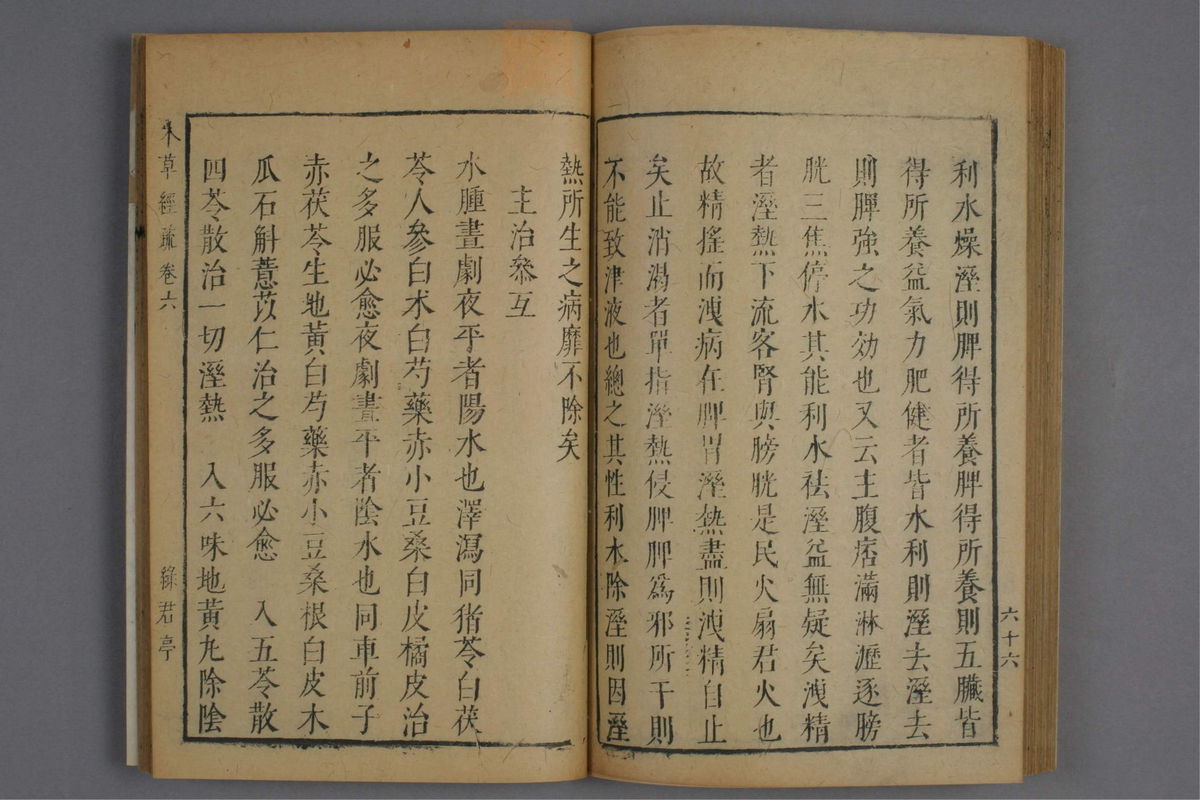 利水燥溼則脾得所養脾得所養則五臟皆
得所養益氣力肥健者皆水利則溼去溼去
則脾強之功効也又云主腹痞滿淋瀝逐膀
胱三焦停水其能利水祛溼益無疑矣洩精
者溼熱下流客腎與膀胱是民火扇君火也
故精搖而洩病在脾胃溼熱盡則洩精自止
矣止消渴者單指溼熱侵脾脾為邪所干則
不能致津液也總之其性利水除溼則因溼
六十六
熱所生之病靡不除矣
主治叅互
水腫晝劇夜平者陽水也澤瀉同猪苓白茯
苓人參白朮白芍藥赤小豆桑白皮橘皮治
之多服必愈夜劇晝平者陰水也同車前子
赤茯苓生地黃白芍藥赤小豆桑根白皮木
瓜石斛薏苡仁治之多服必愈 入五苓散
四苓散治一切溼熱 入六味地黃丸除陰
本草經疏 卷六 綠君亭